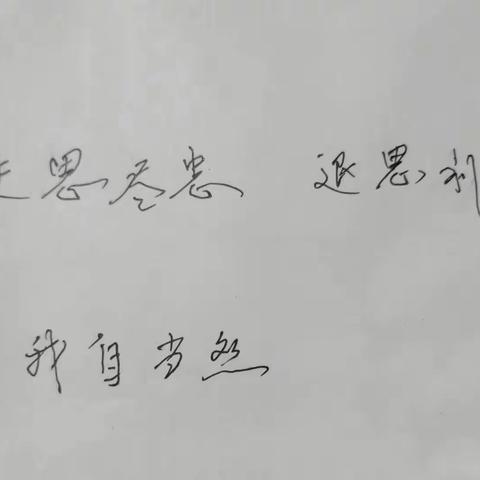 思尽忠 退思
我自当然